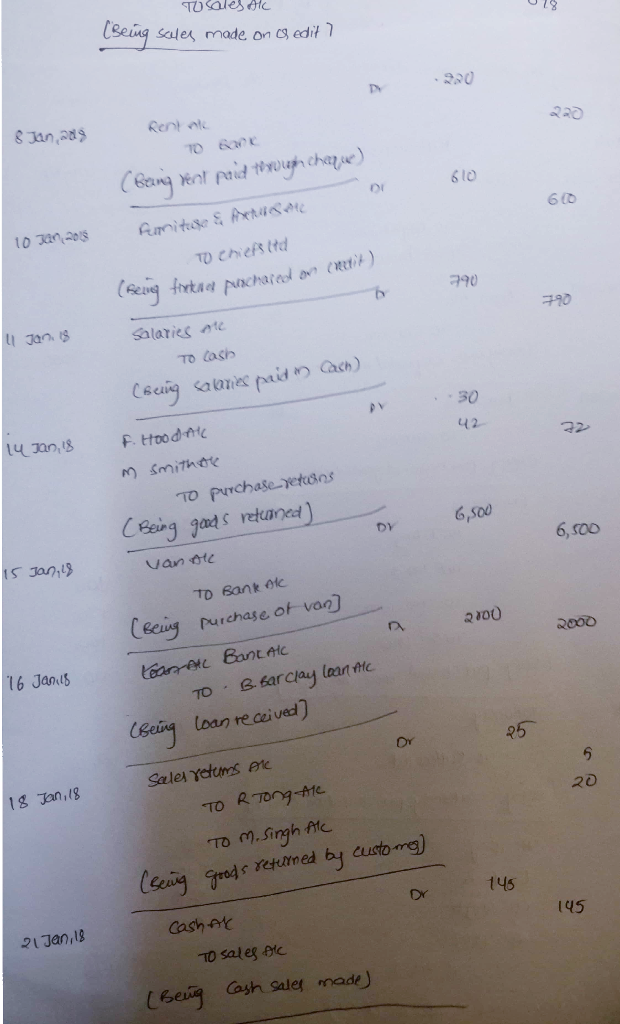 To Sales A/c 78
(Being sales made on credit)
Dr 220
8 Jan, 2018 Rent A/c 220
To Bank
(Being rent paid through cheque)
Dr 610
10 Jan, 2018 Furniture & fixtures A/c 610
To Chiefs Ltd
(Being fixtures purchased on credit)
Dr 790
11 Jan. 18 Salaries A/c 790
To Cash
(Being salaries paid in Cash)
Dr 30
14 Jan, 18 F. Hood A/c 42 72
M Smith A/c
To purchase returns
(Being goods returned)
Dr 6,500
15 Jan, 18 Van A/c 6,500
To Bank A/c
(Being purchase of van)
Dr 2000
16 Jan, 18 Bank A/c 2000
To B. Barclay loan A/c
(Being loan received)
Dr 25
18 Jan, 18 Sales returns A/c 5
To R Tong A/c 20
To M. Singh A/c
(Being goods returned by customer)
Dr 145
21 Jan, 18 Cash A/c 145
To Sales A/c
(Being Cash sales made)